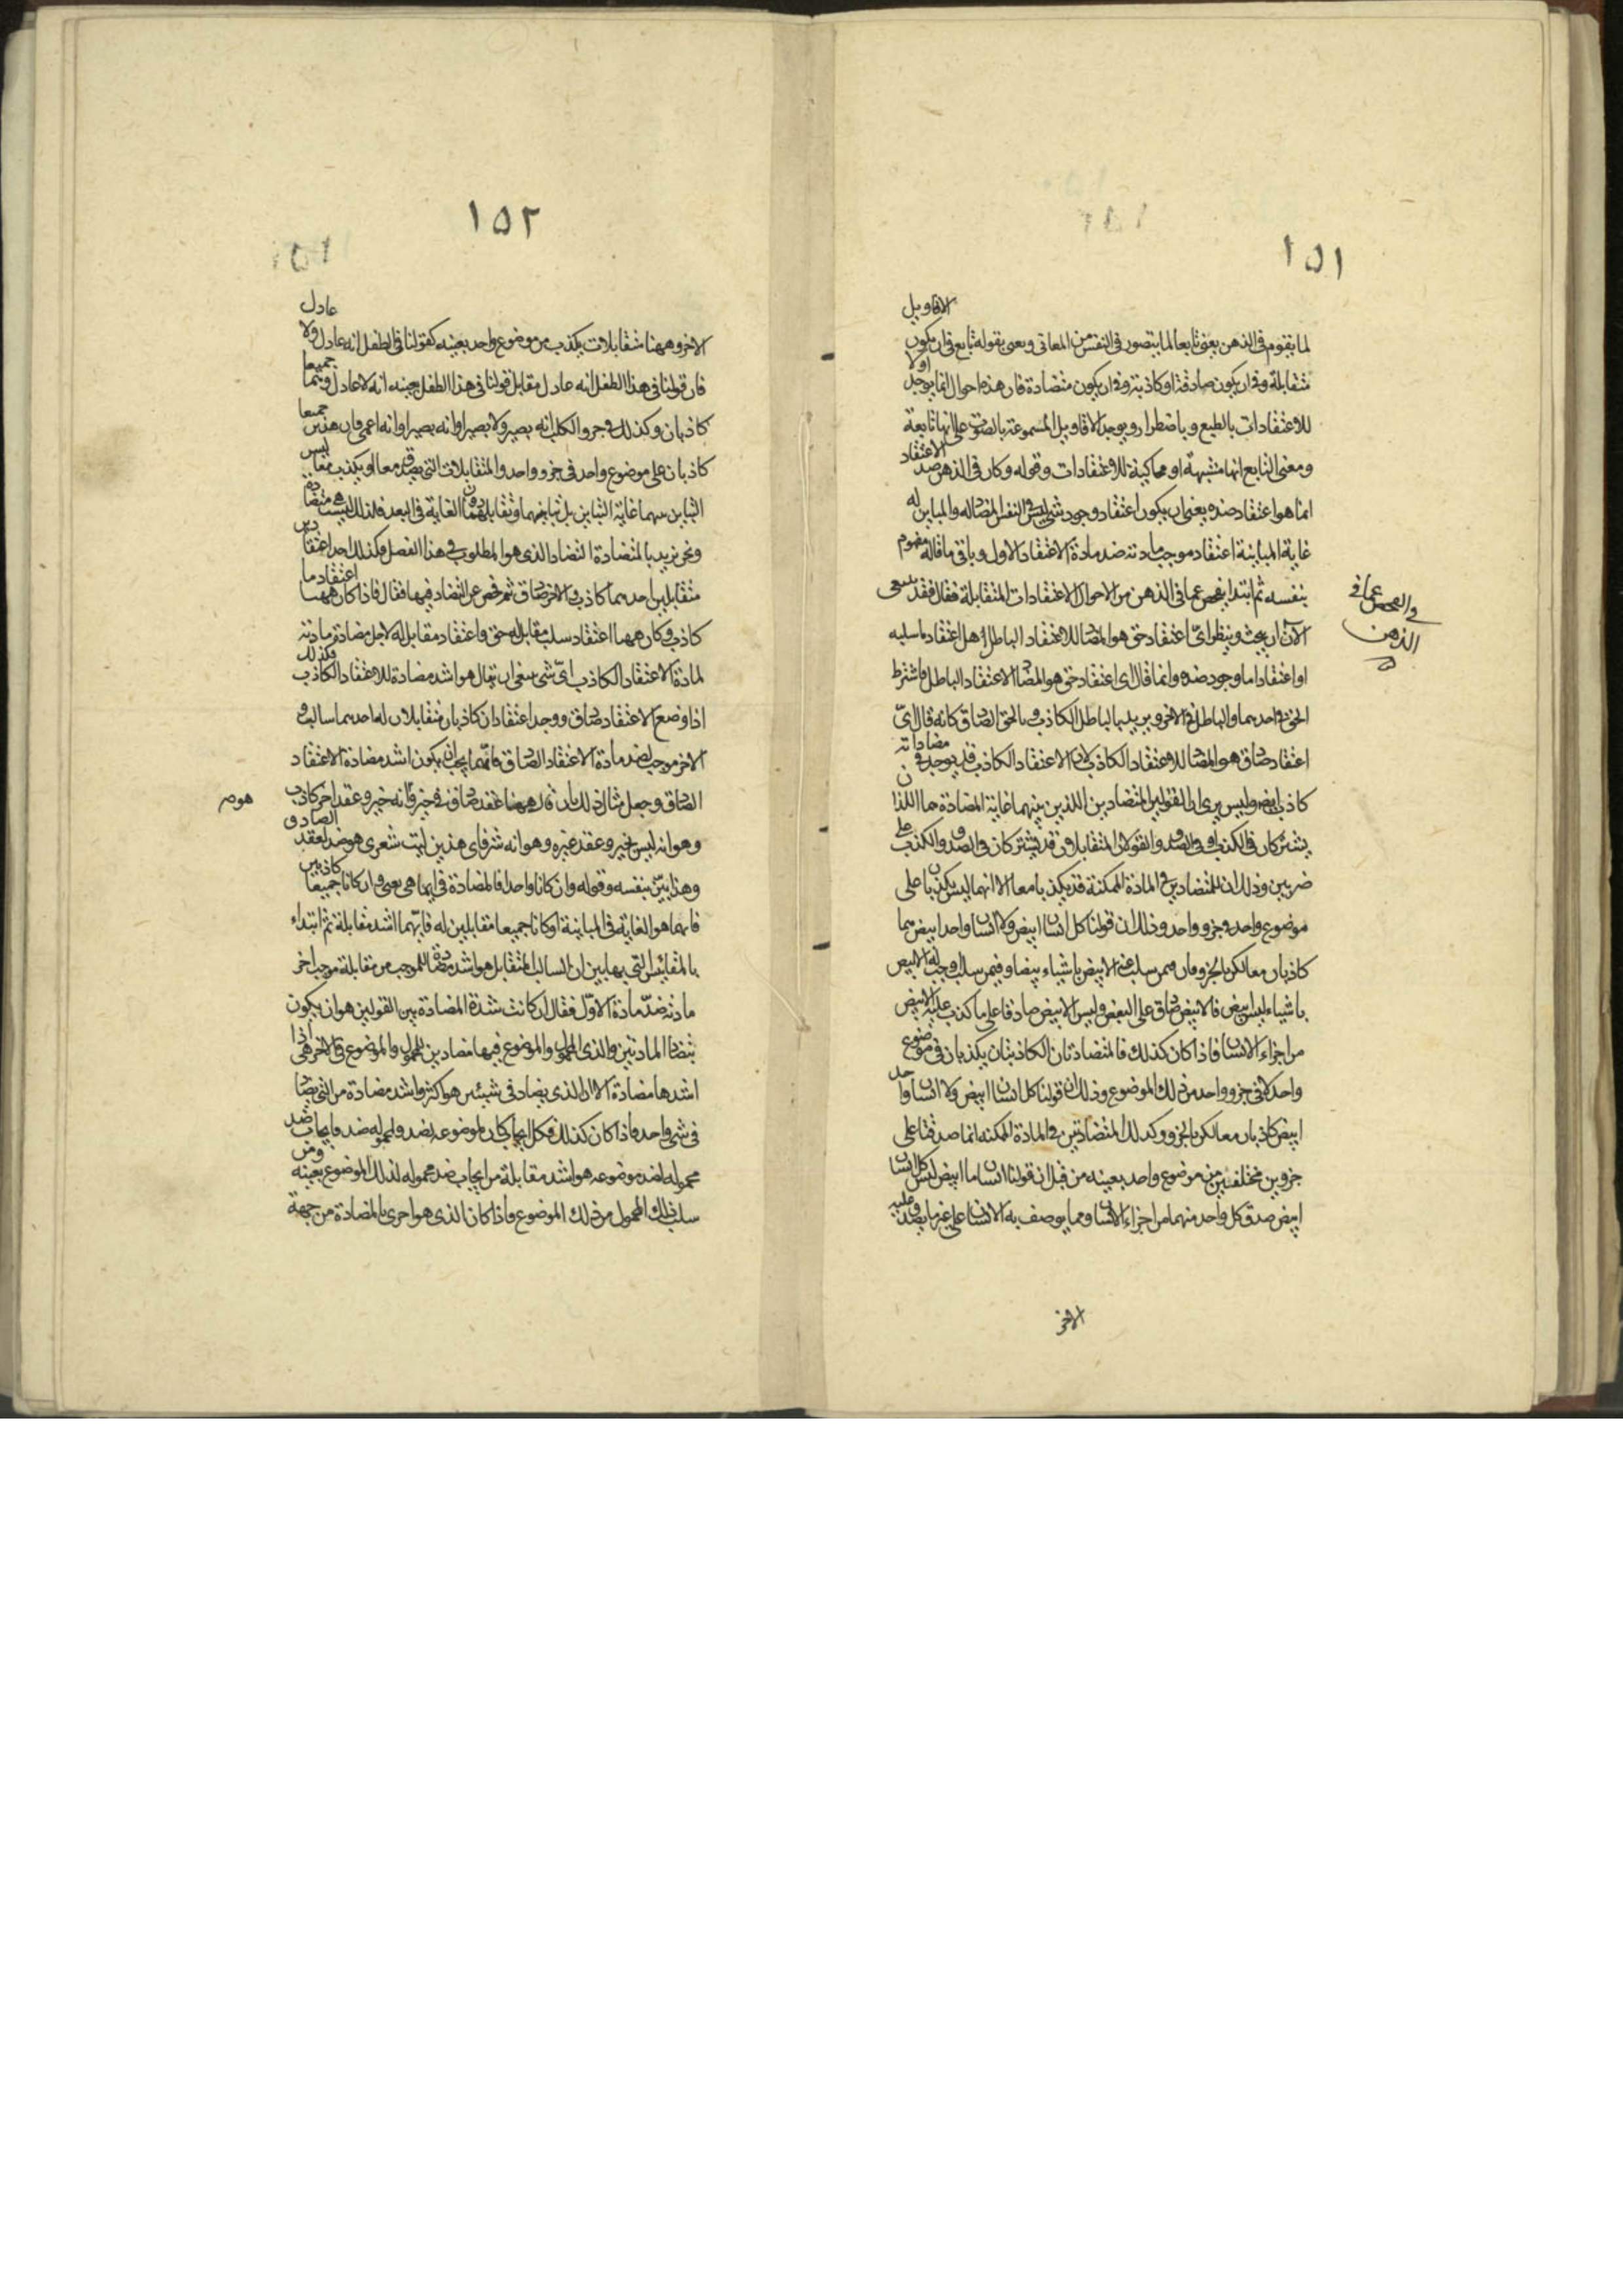 ١٥١
الاقاويل
لما يقوم في الذهن يعني تابعا لما يتصور في النفس من المعاني ويعني بقوله تابع في ان يكون
متقابلة وفي ان يكون صادقة او كاذبة وفي ان يكون متضادة فان هذه احوال انما يوجد اولا
للاعتقادات بالطبع وباضطرار ويوجد الاقاويل المسموعة بالصوت على انها تابعة
ومعنى التابع انها متشبهة او محاكية للاعتقادات وقوله وكان في الذهن ضد الاعتقاد
انما هو اعتقاد ضده يعني ان يكون اعتقاد وجود شي ليس في النفس المضاد له والمباين له
غاية المباينة اعتقاد موجب مادته ضد مادة الاعتقاد الاول وباقي ما قاله مفهوم
بنفسه ثم ابتدا يفحص عما في الذهن من الاحوال الاعتقادات المتقابلة فقال فقد ينبغي
والفحص عما في
الذهن
الآن ان يبحث وينظر اىّ اعتقاد حق هو المضاد للاعتقاد الباطل هل اعتقاد ما سلبه
او اعتقاد اما وجود ضده وانما قال اى اعتقاد حق هو المضاد الاعتقاد الباطل فاشترط
الحق في احدهما والباطل في الاخر ويريد بالباطل الكاذب وبالحق الصادق كانه قال اىّ
اعتقاد صادق هو المضاد للاعتقاد الكاذب لان الاعتقاد الكاذب قد يوجد في مضاداته
كاذب ايضا وليس يرى ان القولين المتضادين اللذين بينهما غاية المضادة هما اللذان
يشتركان في الكذب او في الصدق والقولان المتقابلان قد يشتركان في الصدق والكذب على
ضربين وذلك ان المتضادين في المادة الممكنة قد يكذبا معا الا انهما ليس يكذبا على
موضوع واحد وجزو واحد وذلك ان قولنا كل انسان ابيض ولا انسان واحد ابيض هما
كاذبان معا لكن بالجزو فان فيمن سلب عنه الابيض باشياء بيضا وفيمن سلب وجب له الابيض
باشياء ليس بيض فالابيض صادق على البعض وليس الابيض صادقا على ما كذب عليه الابيض
من اجزاء الانسان فاذا كان كذلك فالمتضادتان الكاذبتان يكذبان في موضوع
واحد لا في جزو واحد من ذلك الموضوع وذلك ان قولنا كل انسان ابيض ولا انسان واحد
ابيض كاذبان معا لكن بالجزو وكذلك المتضادتين في المادة الممكنه انما صدقتا على
جزوين مختلفين من موضوع واحد بعينه من قبل ان قولنا انسان ما ابيض ليس كل انسان
ابيض صدق كل واحد منهما من اجزاء الانسان ومما يوصف به الانسان على غير ما يصدق عليه
الاخر
١٥٢
عادل
الاخر وههنا متقابلات يكذب من موضوع واحد بعينه كقولنا في الطفل انه عادل ولا
فان قولنا في هذا الطفل انه عادل مقابل قولنا في هذا الطفل بعينه انه لا عادل وهما جميعا
كاذبان وكذلك في جرو الكلب انه بصير ولا بصير او انه بصير او انه اعمى فان هذين جميعا
كاذبان على موضوع واحد في جزو واحد والمتقابلات التي يصدق معا او يكذب معا ليس
التباين بينهما غاية التباين بل تباينهما وتقابلهما دون الغاية في البعد فلذلك ليست هي متضادة
ونحن نريد بالمتضادة التضاد الذي هو المطلوب في هذا الفصل وكذلك احد اعتقادين
متقابلين احدهما كاذب والاخر صادق ثم فحص عن التضاد فيهما فقال فاذا كان ههنا اعتقاد ما
كاذب وكان ههنا اعتقاد سلب مقابل له حق واعتقاد مقابل له لاجل مضادة مادته
لمادة الاعتقاد الكاذب اىّ شى ينبغي ان يقال هو اشد مضادة للاعتقاد الكاذب وكذلك
اذا وضع الاعتقاد صادق ووجد اعتقادان كاذبان متقابلان له احدهما سالب و
الاخر موجب لضد مادة الاعتقاد الصادق فايهما يجب ان يكون اشد مضادة الاعتقاد
الصادق وجعل مثال ذلك بان قال ههنا عقد صادق في خير وانه خير وعقد اخر كاذب
هو م
وهو انه ليس بخير وعقد غيره وهو انه شر فاى هذين ليت شعرى هو ضد لعقد الصادق
وهذا بيّن بنفسه وقوله وان كانا واحدا فالمضادة في ايهما هي يعني وان كانا جميعا كاذبين
فايهما هو الغاية في المباينة او كانا جميعا مقابلين له فايّهما اشد مقابلة ثم ابتداء
بالمقايس التي بها يبين ان السالب المتقابل هو اشد مضادة للموجب من مقابلة موجب اخر
مادته ضدّ مادة الاوّل فقال ان كانت شدة المضادة بين القولين هو ان يكون
بتضاد المادتين والذى المحمول والموضوع فيهما مضادين للمحمول والموضوع في الاخر هي اذا
اشدها مضادة الا ان الذى يضاد في شيئين هو اكثر واشد مضادة من التى يضاد
في شى واحد واذا كان كذلك فكل ايجاب كان لموضوعه ضد ولمحموله ضد فايجاب ضد
محموله لضد موضوعه هو اشد مقابلة من ايجاب ضد محموله لذلك الموضوع بعينه ومن
سلب ذلك المحمول من ذلك الموضوع واذا كان الذى هو احرى بالمضادة من جهة